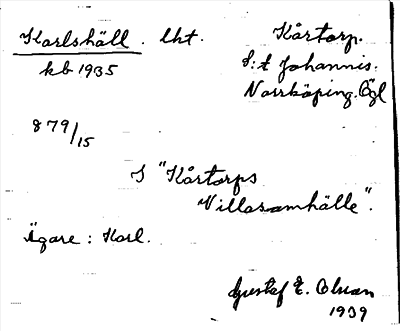 Karlshäll. lht. Kårtorp.
kb 1935 S:t Johannis.
Norrköping. Ögl
879/15
I "Kårtorps
Villasamhälle".
Ägare: Karl.
Gustaf E. Olsson
1939